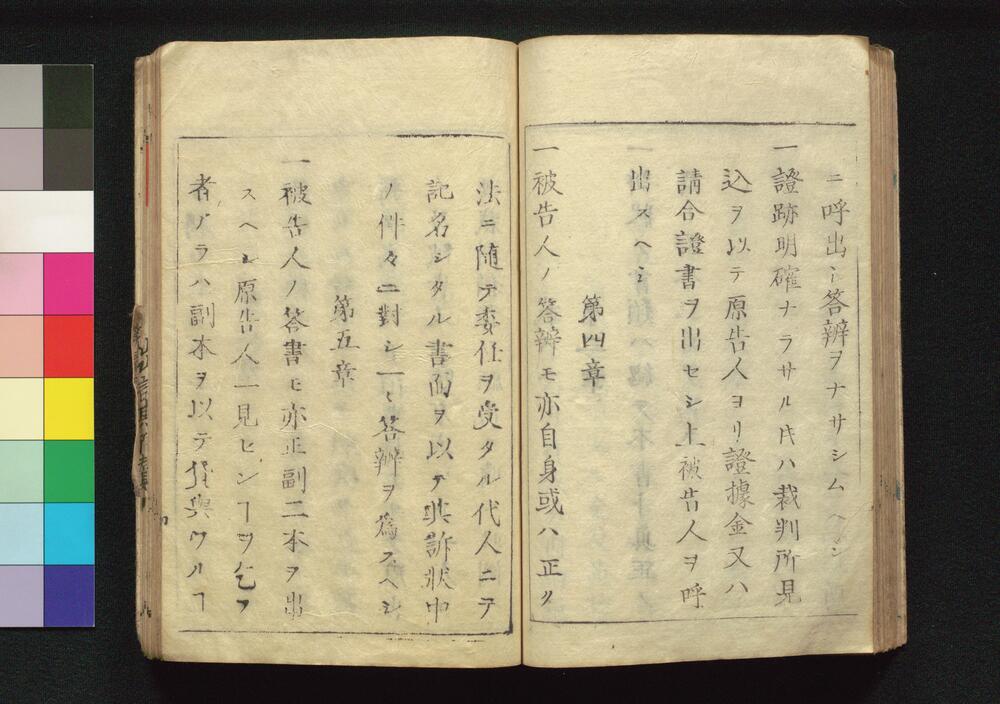 ニ呼出シ答辨ヲナサシムヘシ
一證跡明確ナラサル𪜈ハ裁判所見
込ヲ以テ原告人ヨリ證據金又ハ
請合證書ヲ出セシ上被告人ヲ呼
出スヘシ
第四章
一被告人ノ答辨モ亦自身或ハ正ク
法ニ隨テ委任ヲ受タル代人ニテ
記名シタル書面ヲ以テ其訴狀中
ノ件々ニ對シ一々答辨ヲ爲スヘシ
第五章
一被告人ノ答書モ亦正副二本ヲ出
スヘシ原告人一見センヿヲ乞フ
者アラハ副本ヲ以テ貸與ウルヿ